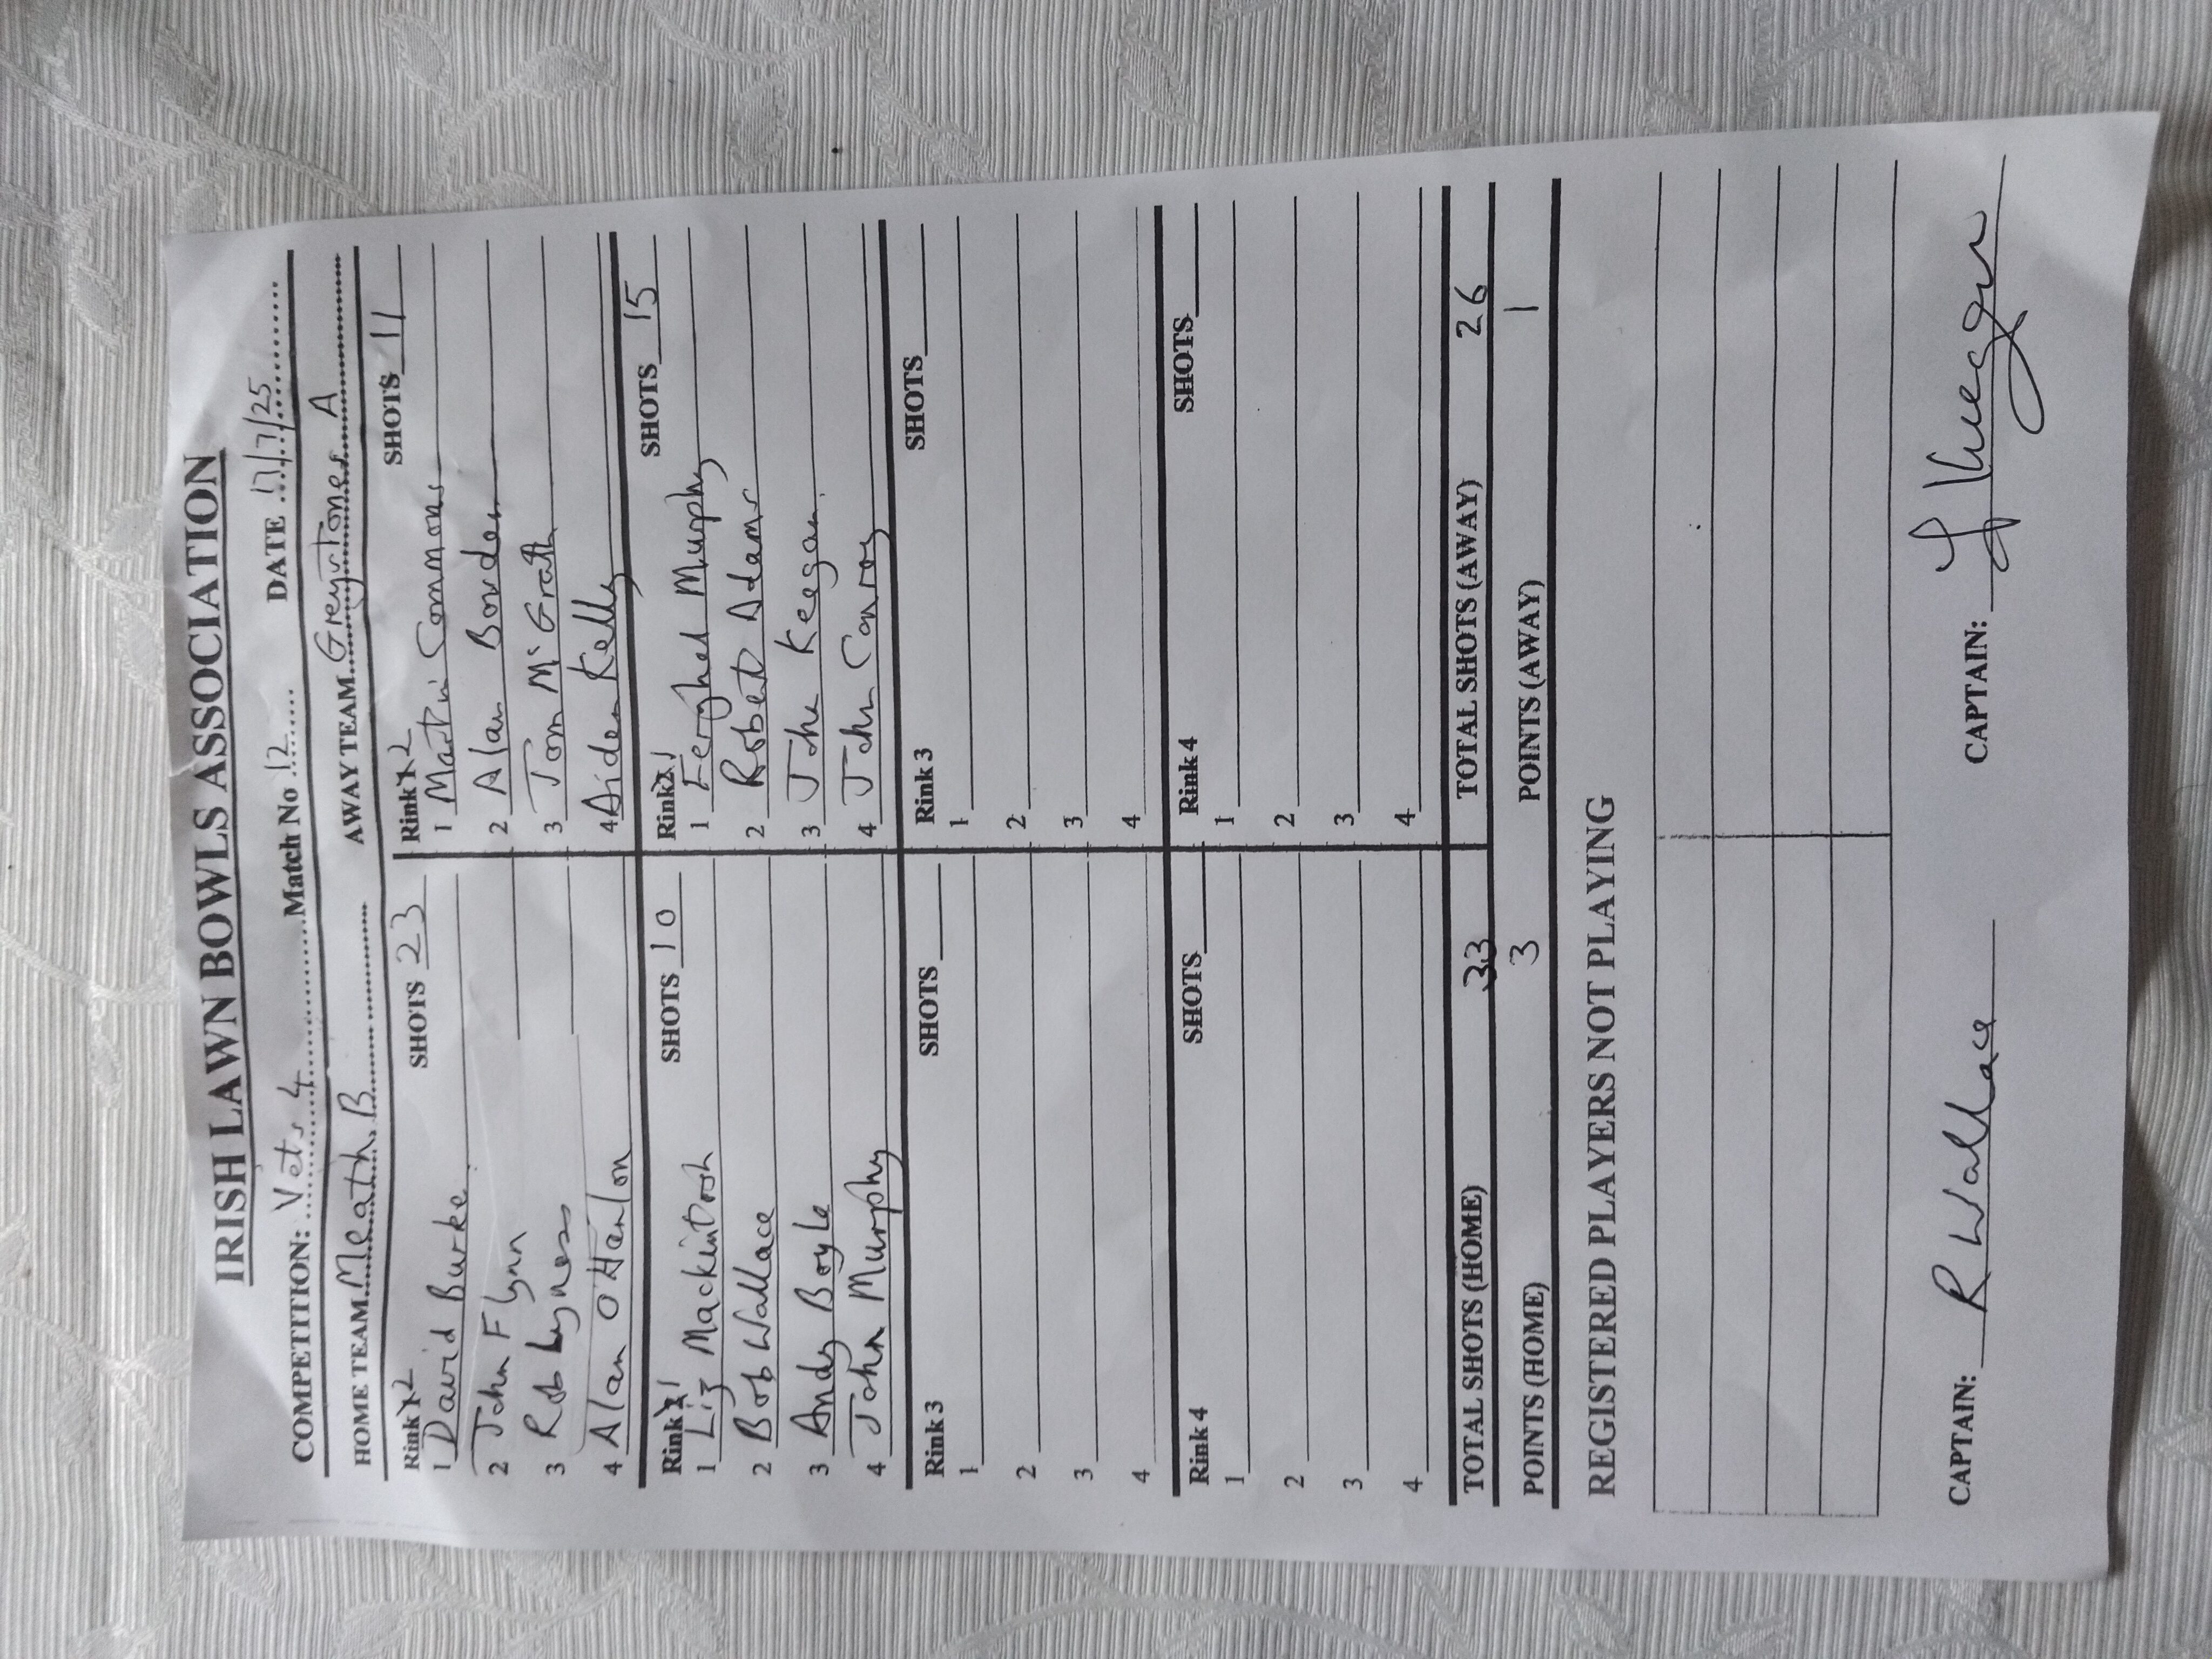 IRISH LAWN BOWLS ASSOCIATION
COMPETITION: Vets 4 Match No 12 DATE 17/7/25
HOME TEAM Meath B AWAY TEAM Greystones A
Rink 2 SHOTS 23 Rink 2 SHOTS 11
1 David Burke 1 Martin Commons
2 John Flynn 2 Alan Bowden
3 Rob Lyness 3 Tom McGrath
4 Alan O'Hanlon 4 Aiden Kelly
Rink 1 SHOTS 10 Rink 1 SHOTS 15
1 Liz Mackintosh 1 Ferghal Murphy
2 Bob Wallace 2 Robert Adams
3 Andy Boyle 3 John Keegan
4 John Murphy 4 John Conroy
Rink 3 SHOTS Rink 3 SHOTS
1 1
2 2
3 3
4 4
Rink 4 SHOTS Rink 4 SHOTS
1 1
2 2
3 3
4 4
TOTAL SHOTS (HOME) 33 TOTAL SHOTS (AWAY) 26
POINTS (HOME) 3 POINTS (AWAY) 1
REGISTERED PLAYERS NOT PLAYING
CAPTAIN: R Wallace CAPTAIN: